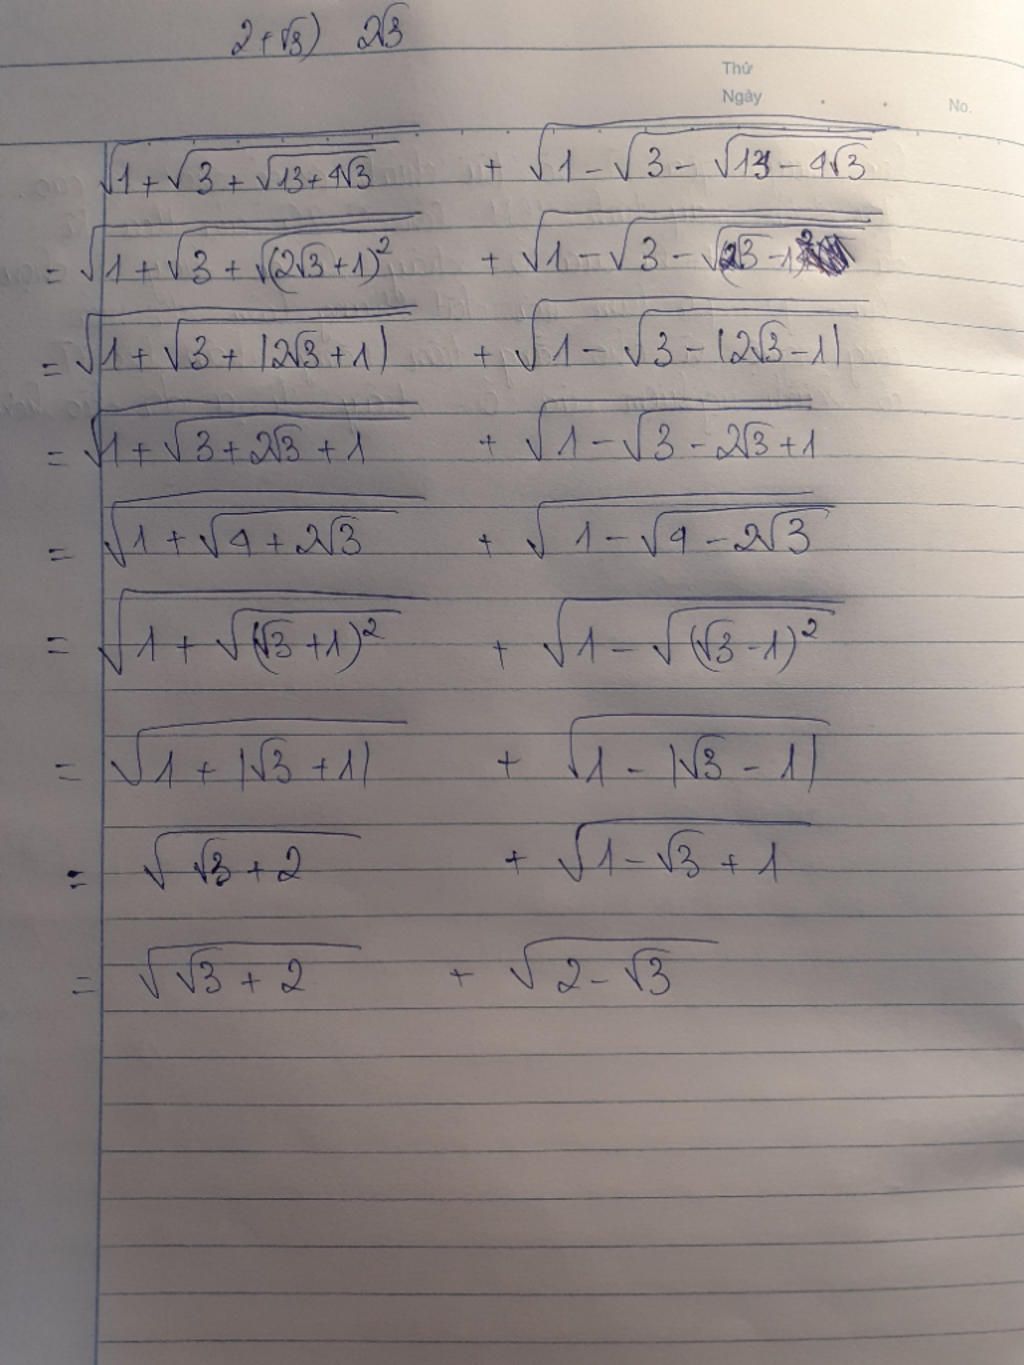 2+√3) 2√3
Thứ
Ngày
No.
√(1 + √(3 + √(13 + 4√3))) + √(1 - √(3 - √(13 - 4√3)))
= √(1 + √(3 + √((2√3 + 1)²))) + √(1 - √(3 - √((2√3 - 1)²)))
= √(1 + √(3 + |2√3 + 1|)) + √(1 - √(3 - |2√3 - 1|))
= √(1 + √(3 + 2√3 + 1)) + √(1 - √(3 - 2√3 + 1))
= √(1 + √(4 + 2√3)) + √(1 - √(4 - 2√3))
= √(1 + √((√3 + 1)²)) + √(1 - √((√3 - 1)²))
= √(1 + |√3 + 1|) + √(1 - |√3 - 1|)
= √(√3 + 2) + √(1 - √3 + 1)
= √(√3 + 2) + √(2 - √3)